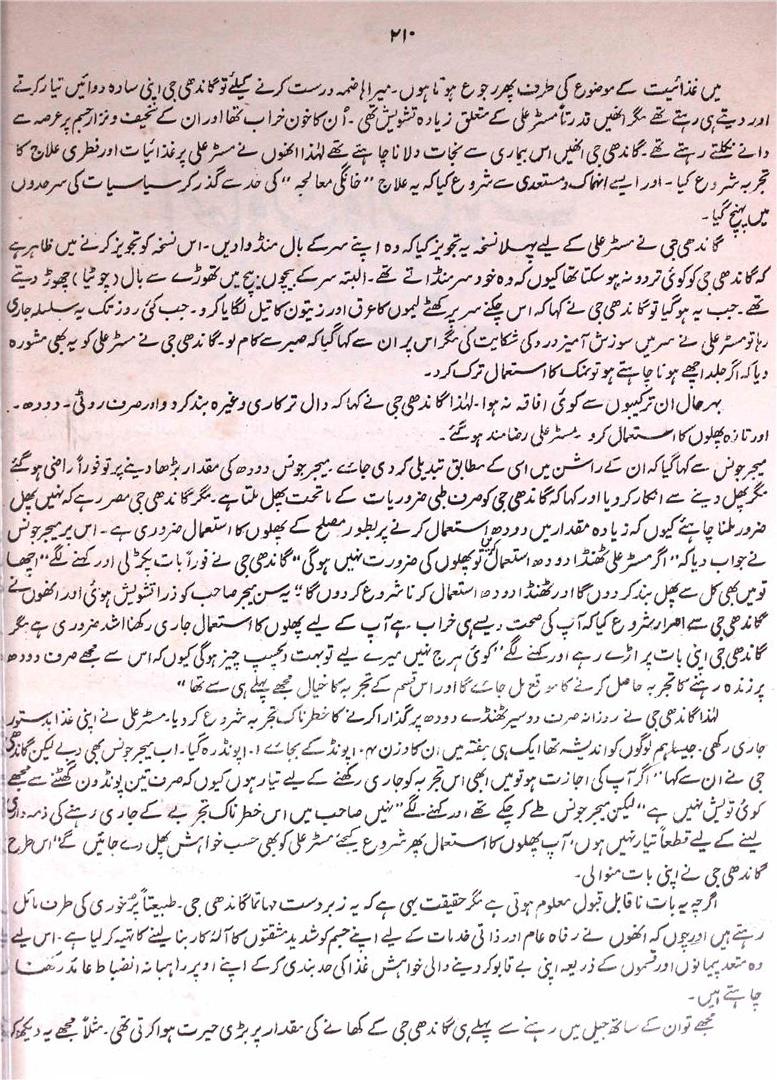 ۲۱۰
میں غذائیت کے موضوع کی طرف پھر رجوع ہوتا ہوں۔ میرا ہاضمہ درست کرنے کیلئے تو گاندھی جی اپنی سادہ دوائیں تیار کرتے
اور دیتے ہی رہتے تھے مگر انھیں قدرتاً مسٹر علی کے متعلق زیادہ تشویش تھی۔ اُن کا خون خراب تھا اور ان کے نحیف و نزار جسم پر عرصہ سے
دانے نکلتے رہتے تھے۔ گاندھی جی انھیں اس بیماری سے نجات دلانا چاہتے تھے لہٰذا انھوں نے مسٹر علی پر غذائیات اور فطری علاج کا
تجربہ شروع کیا۔ اور ایسے انہماک و مستعدی سے شروع کیا کہ یہ علاج "خانگی معالجہ" کی حد سے گذر کر سیاسیات کی سرحدوں
میں پہنچ گیا۔
گاندھی جی نے مسٹر علی کے لیے پہلا نسخہ یہ تجویز کیا کہ وہ اپنے سر کے بال منڈوا دیں۔ اس نسخہ کو تجویز کرنے میں ظاہر ہے
کہ گاندھی جی کو کوئی تردد نہ ہو سکتا تھا کیوں کہ وہ خود سر منڈاتے تھے۔ البتہ سر کے بیچوں بیچ میں تھوڑے سے بال (چوٹیا) چھوڑ دیتے
تھے۔ جب یہ ہو گیا تو گاندھی جی نے کہا کہ اس چکنے سر پر کھٹے لیموں کا عرق اور زیتون کا تیل لگایا کرو۔ جب کئی روز تک یہ سلسلہ جاری
رہا تو مسٹر علی نے سر میں سوزش آمیز درد کی شکایت کی مگر اس پر ان سے کہا گیا کہ صبر سے کام لو۔ گاندھی جی نے مسٹر علی کو یہ بھی مشورہ
دیا کہ اگر جلد اچھے ہونا چاہتے ہو تو نمک کا استعمال ترک کر دو۔
بہر حال ان ترکیبوں سے کوئی افاقہ نہ ہوا۔ لہٰذا گاندھی جی نے کہا کہ دال ترکاری وغیرہ بند کر دو اور صرف روٹی۔ دودھ۔
اور تازہ پھلوں کا استعمال کرو۔ مسٹر علی رضامند ہو گئے۔
میجر جونس سے کہا گیا کہ ان کے راشن میں اسی کے مطابق تبدیلی کر دی جائے۔ میجر جونس دودھ کی مقدار بڑھا دینے پر تو فوراً راضی ہو گئے
مگر پھل دینے سے انکار کر دیا اور کہا کہ گاندھی جی کو صرف طبی ضروریات کے ماتحت پھل ملتا ہے۔ مگر گاندھی جی مصر رہے کہ نہیں پھل
ضرور ملنا چاہئے کیوں کہ زیادہ مقدار میں دودھ استعمال کرنے پر بطور مصلح کے پھلوں کا استعمال ضروری ہے۔ اس پر میجر جونس
نے جواب دیا کہ "اگر مسٹر علی ٹھنڈا دودھ استعمال کریں تو پھلوں کی ضرورت نہیں ہوگی" گاندھی جی نے فوراً بات پکڑ لی اور کہنے لگے "اچھا
تو میں بھی کل سے پھل بند کر دوں گا اور ٹھنڈا دودھ استعمال کرنا شروع کر دوں گا" یہ سن میجر صاحب کو ذرا تشویش ہوئی اور انھوں نے
گاندھی جی سے اصرار شروع کیا کہ آپ کی صحت ویسے ہی خراب ہے آپ کے لیے پھلوں کا استعمال جاری رکھنا اشد ضروری ہے مگر
گاندھی جی اپنی بات پر اڑے رہے اور کہنے لگے "کوئی ہرج نہیں میرے لیے تو بہت دلچسپ چیز ہوگی کیوں کہ اس سے مجھے صرف دودھ
پر زندہ رہنے کا تجربہ حاصل کرنے کا موقع مل جائے گا اور اس قسم کے تجربہ کا خیال مجھے پہلے ہی سے تھا"
لہٰذا گاندھی جی نے روزانہ صرف دو سیر ٹھنڈے دودھ پر گذارا کرنے کا خطرناک تجربہ شروع کر دیا۔ مسٹر علی نے اپنی غذا بدستور
جاری رکھی۔ جیسا ہم لوگوں کو اندیشہ تھا ایک ہی ہفتہ میں ان کا وزن ۱۰۴ پونڈ کے بجائے ۱۰۱ پونڈ رہ گیا۔ اب میجر جونس بھی دبے لیکن گاندھی
جی نے ان سے کہا "اگر آپ کی اجازت ہو تو میں ابھی اس تجربہ کو جاری رکھنے کے لیے تیار ہوں کیوں کہ صرف تین پونڈ وزن گھٹنے سے مجھے
کوئی تشویش نہیں ہے" لیکن میجر جونس طے کر چکے تھے اور کہنے لگے "نہیں صاحب میں اس خطرناک تجربے کے جاری رہنے کی ذمہ داری
لینے کے لیے قطعاً تیار نہیں ہوں، آپ پھلوں کا استعمال پھر شروع کیجئے مسٹر علی کو بھی حسب خواہش پھل دے جائیں گے" اس طرح
گاندھی جی نے اپنی بات منوالی۔
اگرچہ یہ بات ناقابل قبول معلوم ہوتی ہے مگر حقیقت یہی ہے کہ یہ زبردست مہاتما گاندھی جی۔ طبیعتاً پُرخوری کی طرف مائل
رہتے ہیں اور چوں کہ انھوں نے رفاہ عام اور ذاتی خدمات کے لیے اپنے جسم کو شدید مشقتوں کا آلۂ کار بنا لینے کا تہیہ کر لیا ہے۔ اس لیے
وہ متعدد پیمانوں اور قسموں کے ذریعہ اپنی بے قابو کر دینے والی خواہش غذا کی حد بندی کر کے اپنے اوپر راہبانہ انضباط عائد رکھنا
چاہتے ہیں۔
مجھے تو ان کے ساتھ جیل میں رہنے سے پہلے ہی گاندھی جی کے کھانے کی مقدار پر بڑی حیرت ہوا کرتی تھی۔ مثلاً مجھے یہ دیکھ کر